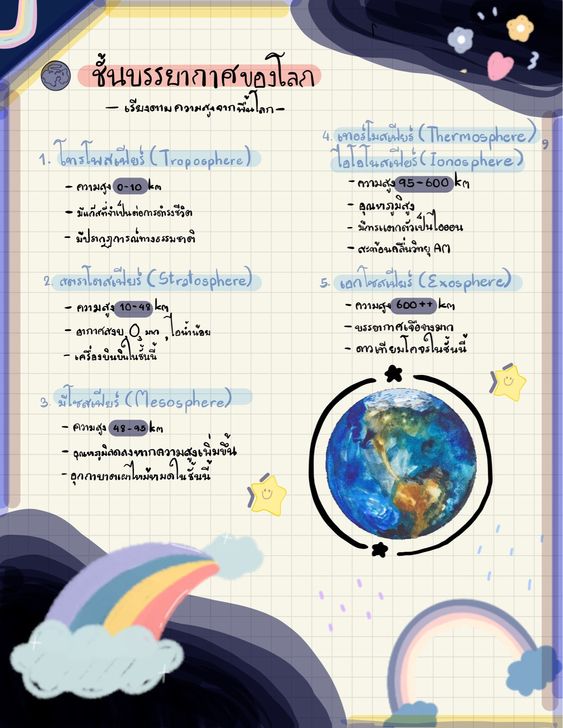 ชั้นบรรยากาศของโลก
- เรียงตามความสูงจากพื้นโลก -
1. โทรโพสเฟียร์ (Troposphere)
- ความสูง 0-10 km
- มีแก๊สที่จำเป็นต่อการดำรงชีวิต
- มีปรากฏการณ์ทางธรรมชาติ
2. สตราโตสเฟียร์ (Stratosphere)
- ความสูง 10-48 km
- อากาศสงบ, O₃ มาก, ไอน้ำน้อย
- เครื่องบินบินในชั้นนี้
3. มีโซสเฟียร์ (Mesosphere)
- ความสูง 48-95 km
- อุณหภูมิลดลงหากความสูงเพิ่มขึ้น
- อุกกาบาตเผาไหม้หมดในชั้นนี้
4. เทอร์โมสเฟียร์ (Thermosphere),
ไอโอโนสเฟียร์ (Ionosphere)
- ความสูง 95-600 km
- อุณหภูมิสูง
- มีการแตกตัวเป็นไอออน
- สะท้อนคลื่นวิทยุ AM
5. เอกโซสเฟียร์ (Exosphere)
- ความสูง 600++ km
- บรรยากาศเจือจางมาก
- ดาวเทียมโคจรในชั้นนี้